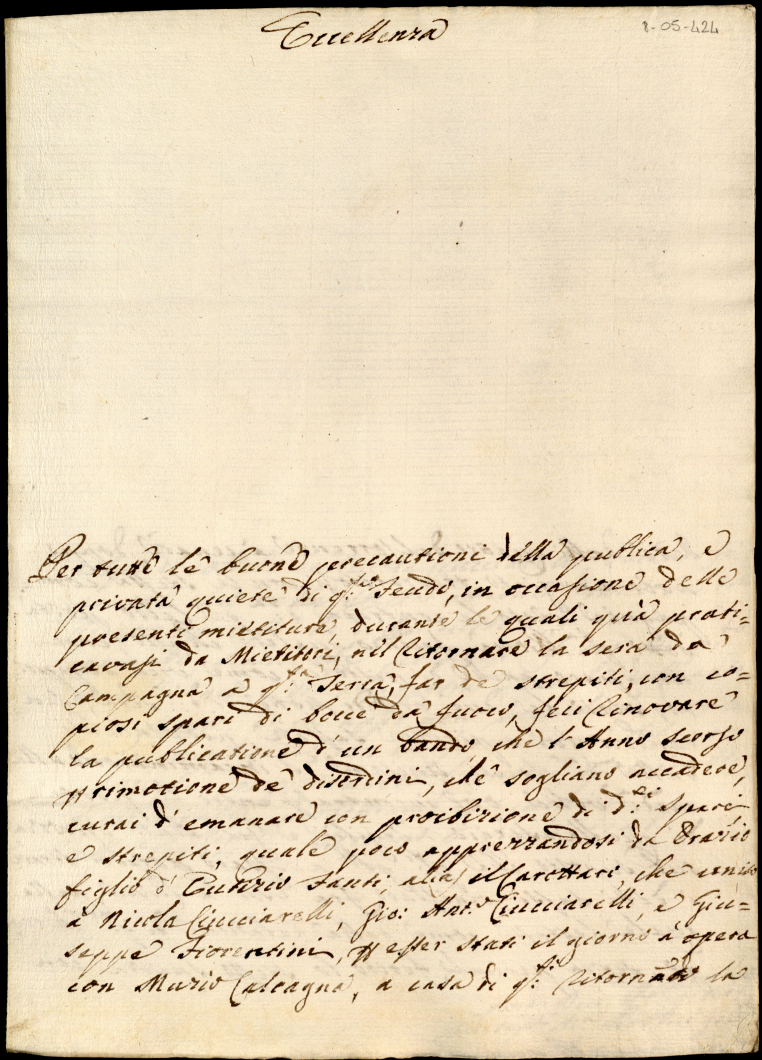 Eccellenza
8-05-424
Per tutte le buone precautioni della publica, e
privata quiete di q.to Feudo, in occasione delle
presenti mietiture, durante le quali quà prati=
cavasi da Mietitori, nel ritornare la sera da
Campagna a q.ta Terra, far de strepiti, con co=
piosi spari di bocce da fuoco, feci rinovare
la publicatione d'un bando, che l'Anno scorso
rimotione de disordini, che sogliano accadere,
curai d'emanare con proibizione di d.ti spari
e strepiti, quale poco apprezzandosi da Orazio
figlio d' Santi, il Carottaro, che unito
à Nicola Ciucciarelli, Gio: Ant.o Ciucciarelli, e Giu=
seppe Fiorentini, esser stati il giorno à opera
con Muzio Calcagna, a casa di q.ti ritornato la